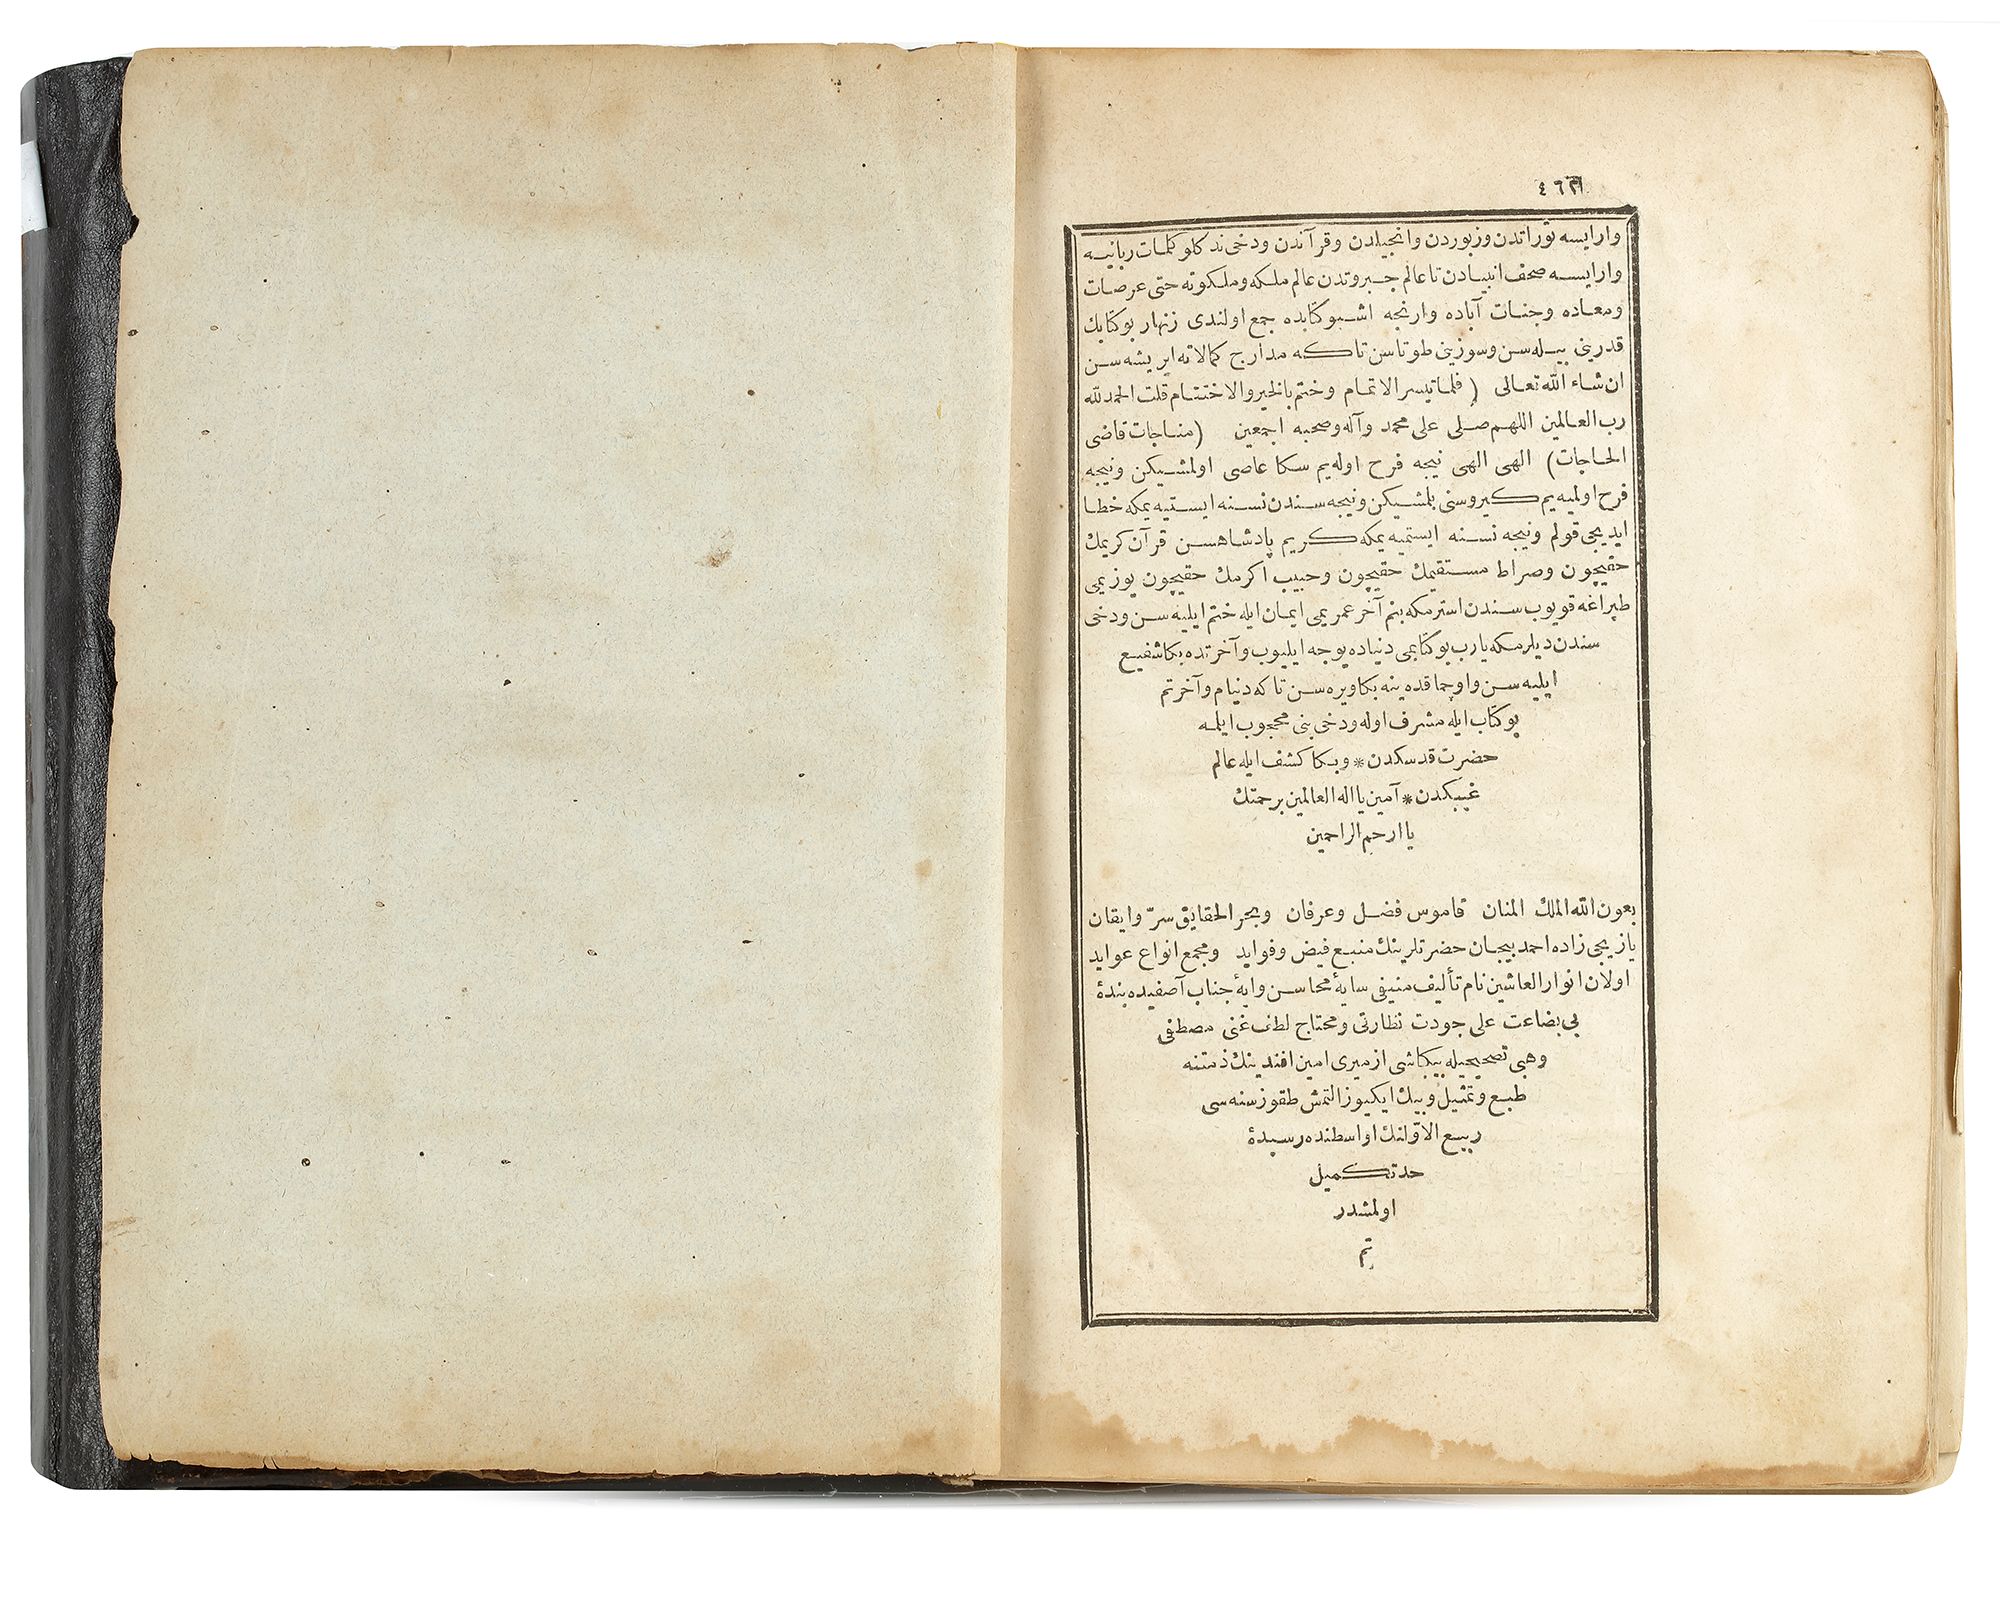 وار ايسه توراتدن و زبوردن وانجيلدن وقرآندن ودخى ند كلو كلمات ربانيه
وار ايسه صحف انبيادن تا عالم جبروتدن عالم ملكه وملكوته حتى عرصات
ومعاده وجنات آباده وارنجه اشبو كتابده جمع اولندى زنهار بو كتابك
قدرينى بيله سن وسوزينى طوتاسن تا كه مدارج كمالاته ايريشه سن
ان شاء الله تعالى ( فلما تيسر الاتمام وختم بالخير والاختتام قلت الحمد لله
رب العالمين اللهم صلى على محمد وآله وصحبه اجمعين (مناجات قاضى
الحاجات) الهى الهى نيجه فرح اوله يم سكا عاصى اولمشيكن ونيجه
فرح اولميه يم كيروسنى بلمشيكن ونيجه سندن نسنه ايستيه يمكه خطا
ايديجى قولم ونيجه نسنه ايستميه يمكه كريم پادشاهسن قرآن كريمك
حقيچون وصراط مستقيمك حقيچون وحبيب اكرمك حقيچون يوزيمى
طپراغه قويوب سندن استرمكه بنم آخر عمريمى ايمان ايله ختم ايليه سن ودخى
سندن ديلرمكه يارب بو كتابمى دنياده يوجه ايليوب وآخرتده بكا شفيع
ايليه سن واوچماقده ينه بكا ويره سن تا كه دنيام وآخرتم
بو كتاب ايله مشرف اوله ودخى بنى محجوب ايلمه
حضرت قدسكدن * وبكا كشف ايله عالم
غيبكدن * آمين يا اله العالمين برحمتك
يا ارحم الراحمين
بعون الله الملك المنان قاموس فضل وعرفان وبحر الحقايق سرّ وايقان
يازيجى زاده احمد بيجان حضرتلرينك منبع فيض وفوايد ومجمع انواع عوايد
اولان انوار العاشقين نام تأليف منيفى سايهٔ محاسن وايهٔ جناب آصفيده بندهٔ
بى بضاعت على جودت نظارتى ومحتاج لطف غنى مصطفى
وهبى تصحيحيله بيكباشى ازميرى امين افندينك ذمتنه
طبع وتمثيل وبيك ايكيوز التمش طقوز سنه سى
ربيع الاولنك اواسطنده رسيدهٔ
حد تكميل
اولمشدر
تم